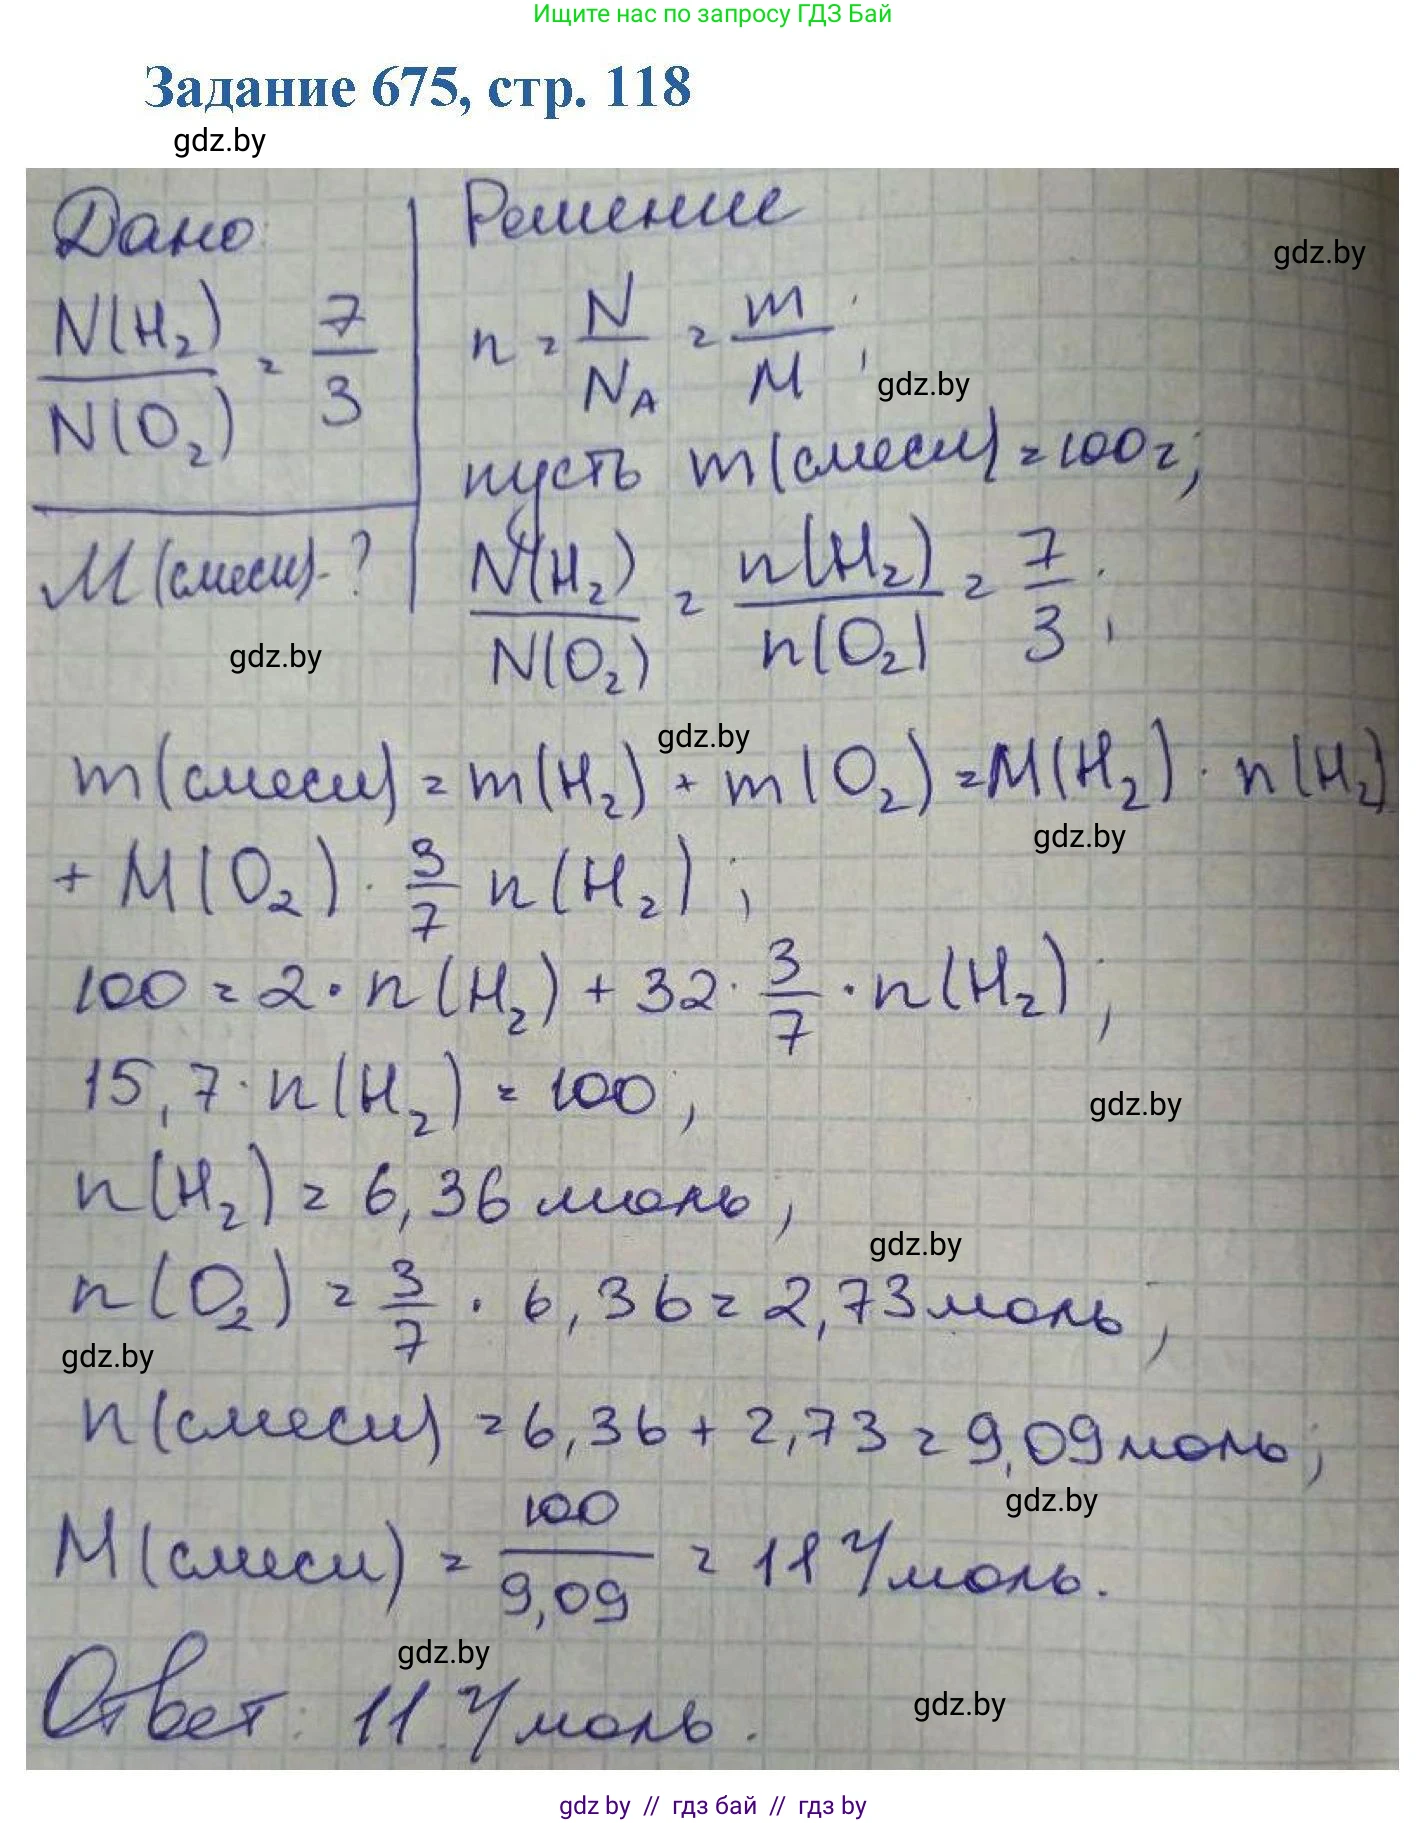 Ищите нас по запросу ГДЗ Бай
Задание 675, стр. 118
gdz.by
Дано: Решение
gdz.by
N(H₂)/N(O₂) = 7/3
n = N/N_A = m/M;
gdz.by
пусть m(смеси) = 100г;
M(смеси)-?
N(H₂)/N(O₂) = n(H₂)/n(O₂) = 7/3;
gdz.by
gdz.by
m(смеси) = m(H₂) + m(O₂) = M(H₂) · n(H₂)
gdz.by
+ M(O₂) · 3/7 n(H₂);
100 = 2 · n(H₂) + 32 · 3/7 · n(H₂);
15,7 · n(H₂) = 100;
gdz.by
n(H₂) = 6,36 моль;
gdz.by
n(O₂) = 3/7 · 6,36 = 2,73 моль;
gdz.by
n(смеси) = 6,36 + 2,73 = 9,09 моль;
gdz.by
M(смеси) = 100/9,09 = 11 г/моль.
gdz.by
Ответ: 11 г/моль.
gdz.by
gdz by // гдз бай // гдз by